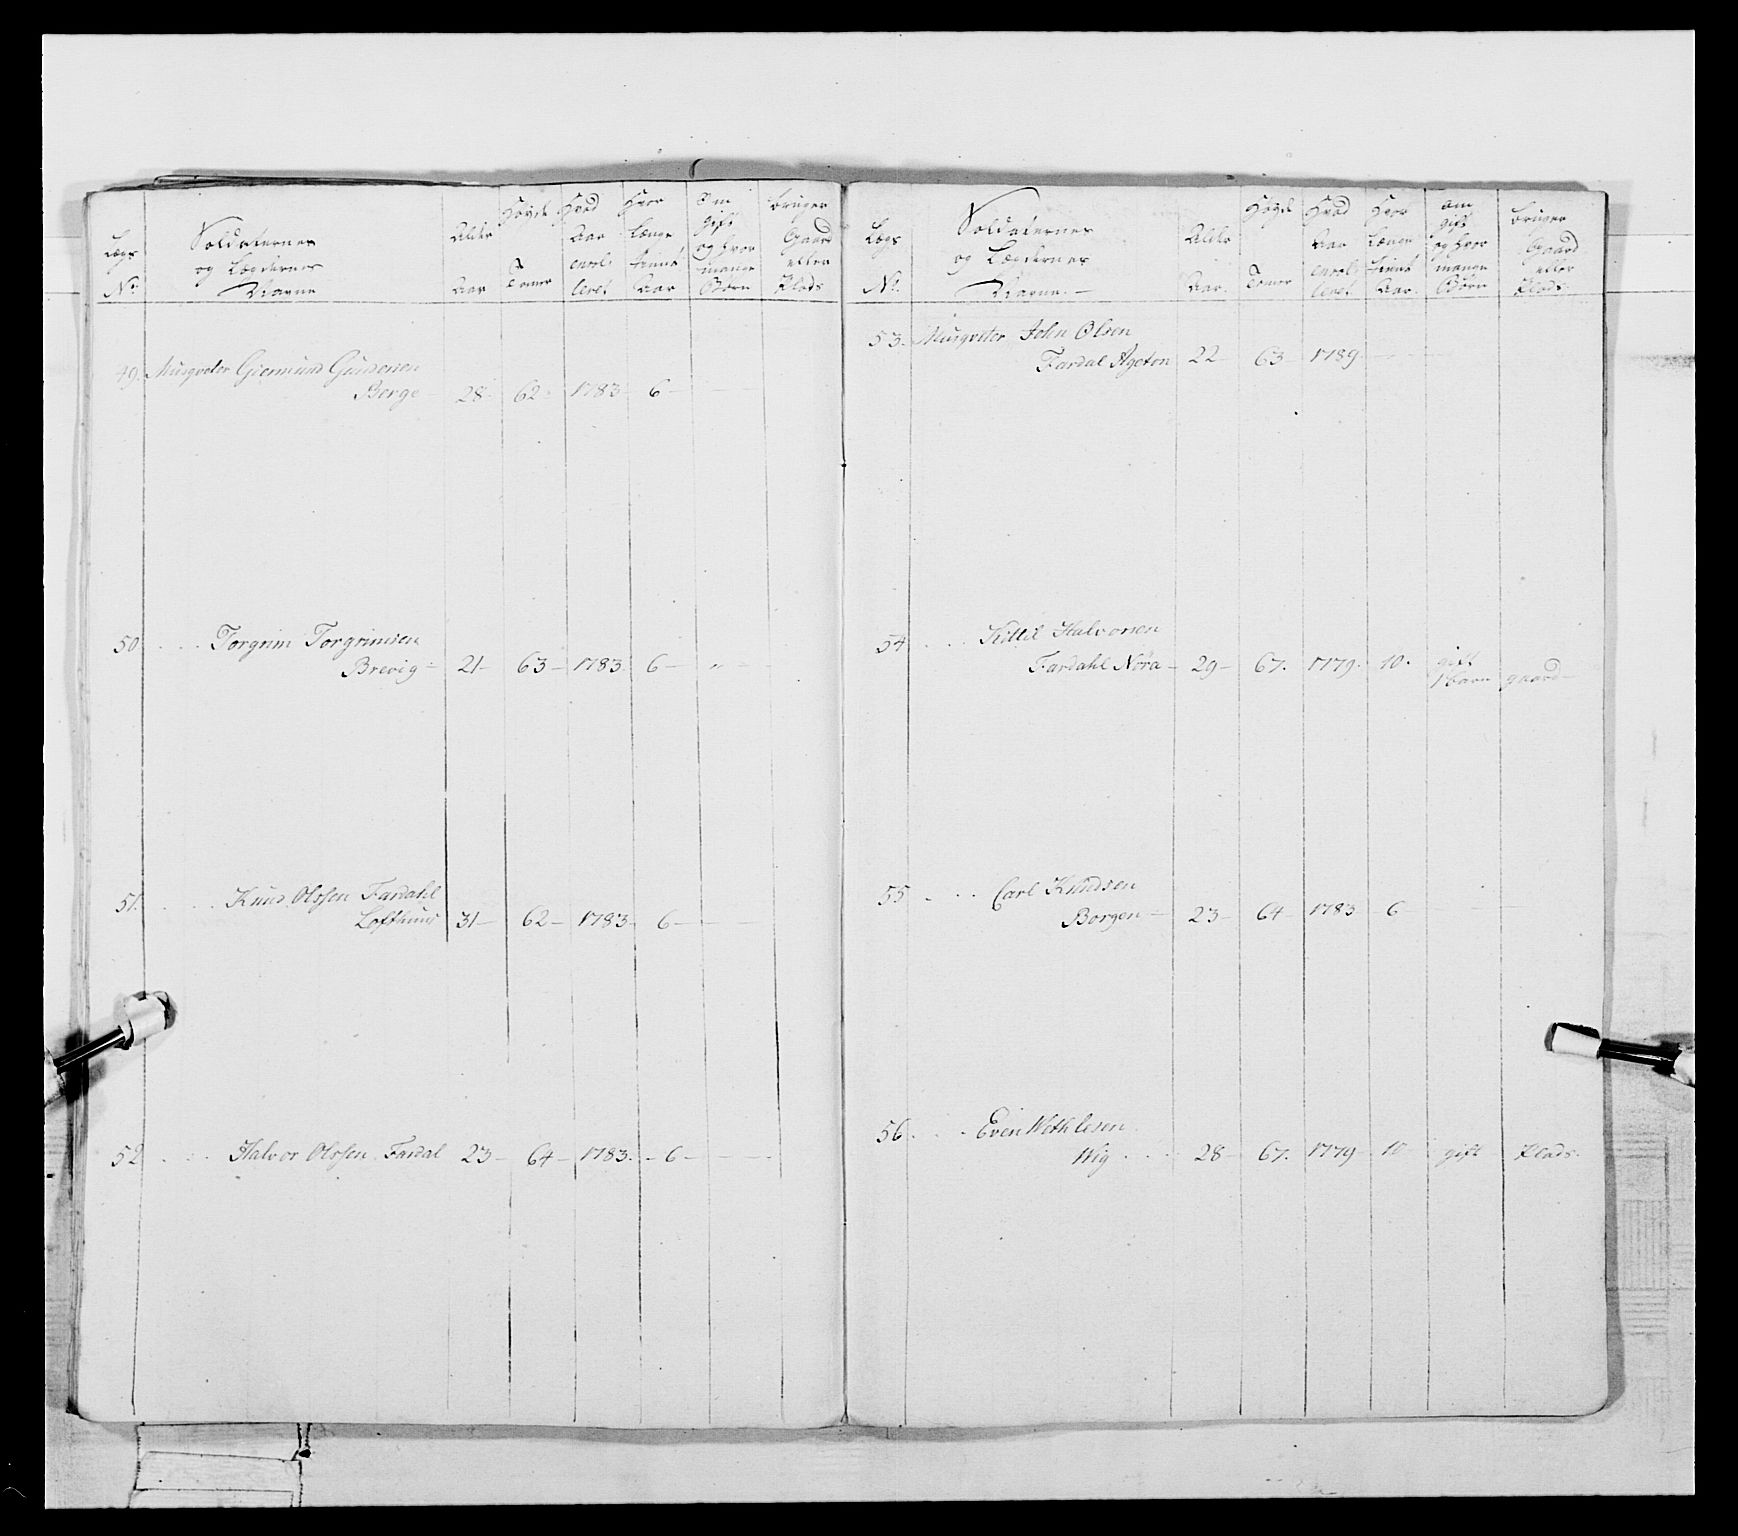 Lægs No.
Soldaternes og Lægdernes Navne
Alder Aar
Høyde Tomer
Hvad Aar enrolleret
Hvor Længe tiint Aar
Om gift og hvor mange Børn
bruger Gaard eller Plads
49. Musqveter Giermund Gundersen
Borge – 28 62 1783 6 –
50 . . . Torgrim Torgrimsen
Brevig – 21 – 63 – 1783. 6 – „ –
51. . . . Knud Olssen Fardahl
Lofthuus 31 – 62 – 1783 – 6 – –
52 . . . Halvor Olssen Fardal 23 – 64 – 1783. – 6 – –
Lægs No.
Soldaternes og Lægdernes Navne. –
Alder Aar.
Høyde Tomer
Hvad Aar enrolleret
Hvor Længe tiint Aar.
om gift og hvor mange Børn
bruger Gaard eller Plads.
53. Musqveter John Olsen
Fardal Ageton 22 – 63 – 1789. – –
54 . . . Kittil Halvorsen
Fardahl Nøra – 29 – 67. 1779. 10. gift
1 barn gaard –
55 . . . Carl Knudsen
Borgen – 23 – 64 – 1783 – 6 – – –
56. . . . Even Wethlesen.
Wig . . . 28 – 67. 1779 – 10 gift Plads.